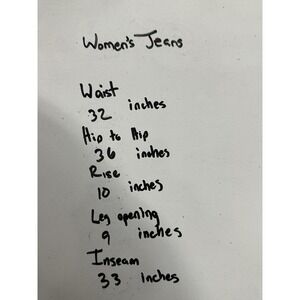 Women's Jeans
Waist
32 inches
Hip to Hip
36 inches
Rise
10 inches
Leg opening
9 inches
Inseam
33 inches